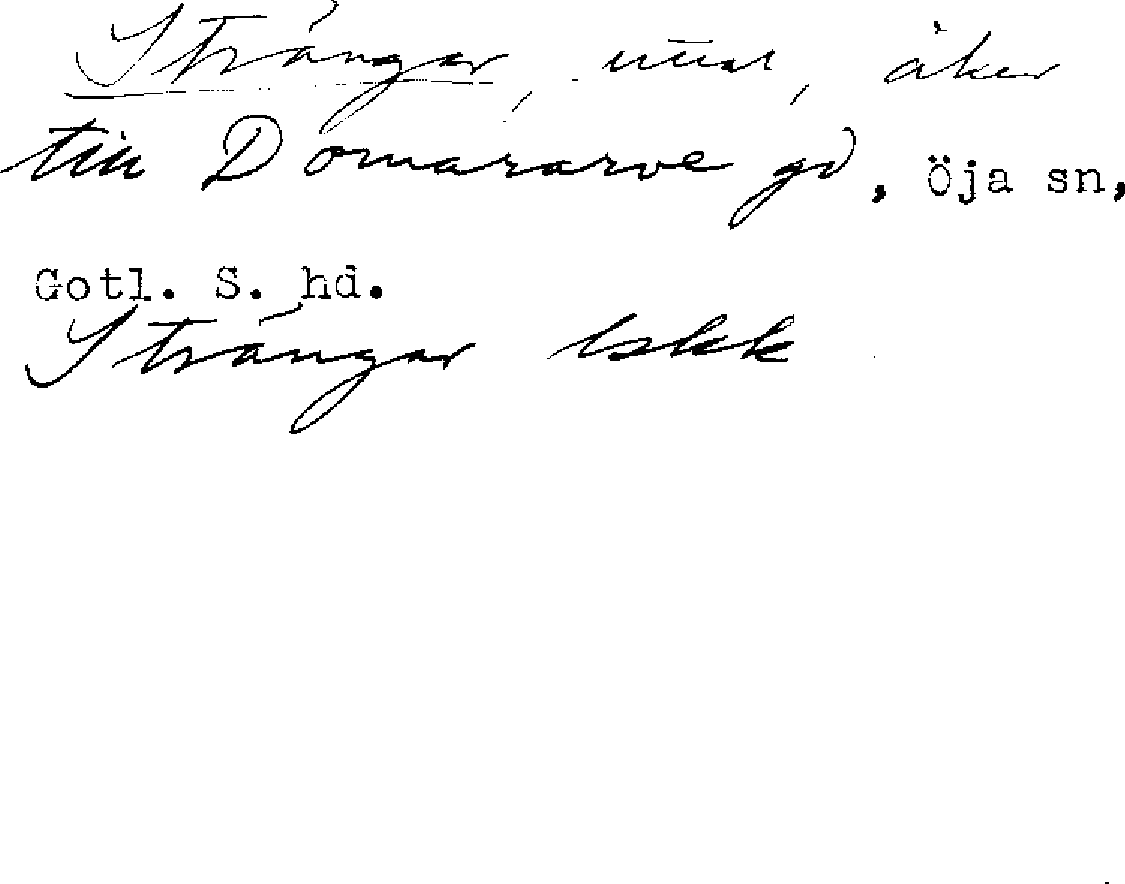 Strängar, , åker
till Domararve gd, Öja sn,
Gotl. S. hd.
Strängar lskk